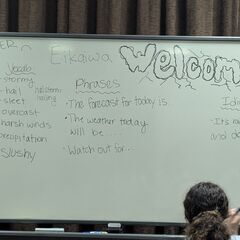 Eikaiwa
Welcom
Vocab:
stormy
hail hailstorm
hailing
sleet
overcast
harsh winds
precipitation
slushy
Phrases
The forecast for today is...
The weather today
will be....
Watch out for...
Idi
It's ra
and do